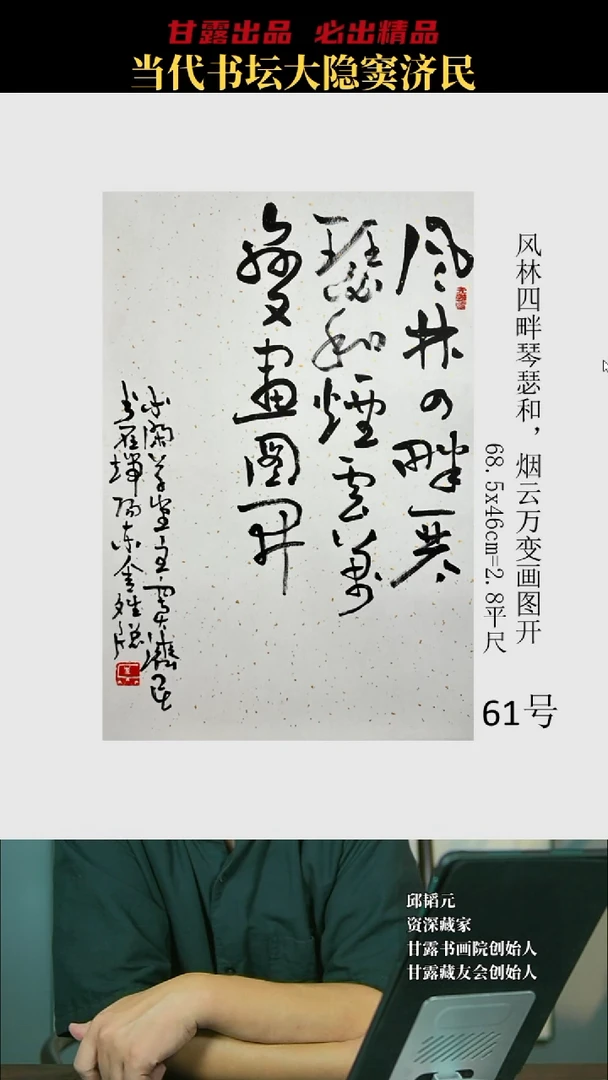 甘露出品 必出精品
当代书坛大隐窦济民
风林四畔琴
瑟和煙雲萬
變畫图開
风林四畔琴瑟和，烟云万变画图开
68.5x46cm=2.8平尺
61号
邱韬元
资深藏家
甘露书画院创始人
甘露藏友会创始人